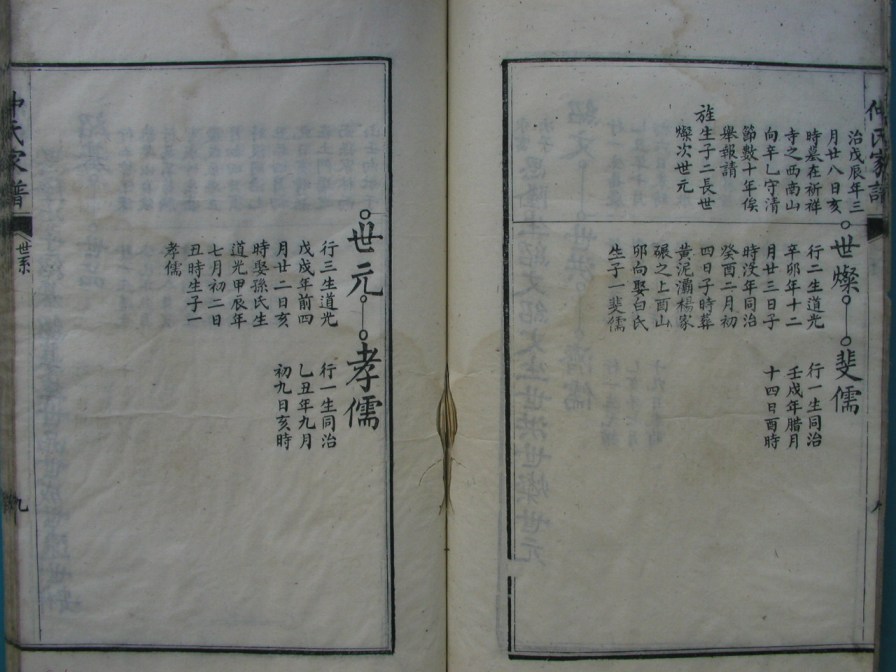 仲氏家譜
治戊辰年三
月廿八日亥
時墓在祈祥
寺之西南山
向辛乙守清
節數十年俟
舉報請
旌生子二長世
燦次世元
世燦
行二生道光
辛卯年十二
月廿三日子
時沒年同治
癸酉二月初
四日子時葬
黃泥灞楊家
碾之上酉山
卯向娶白氏
生子一斐儒
斐儒
行一生同治
壬戌年腊月
十四日酉時
世元
行三生道光
戊戌年前四
月廿二日亥
時娶孫氏生
道光甲辰年
七月初二日
丑時生子一
孝儒
孝儒
行一生同治
乙丑年九月
初九日亥時
仲氏家譜
世系
九